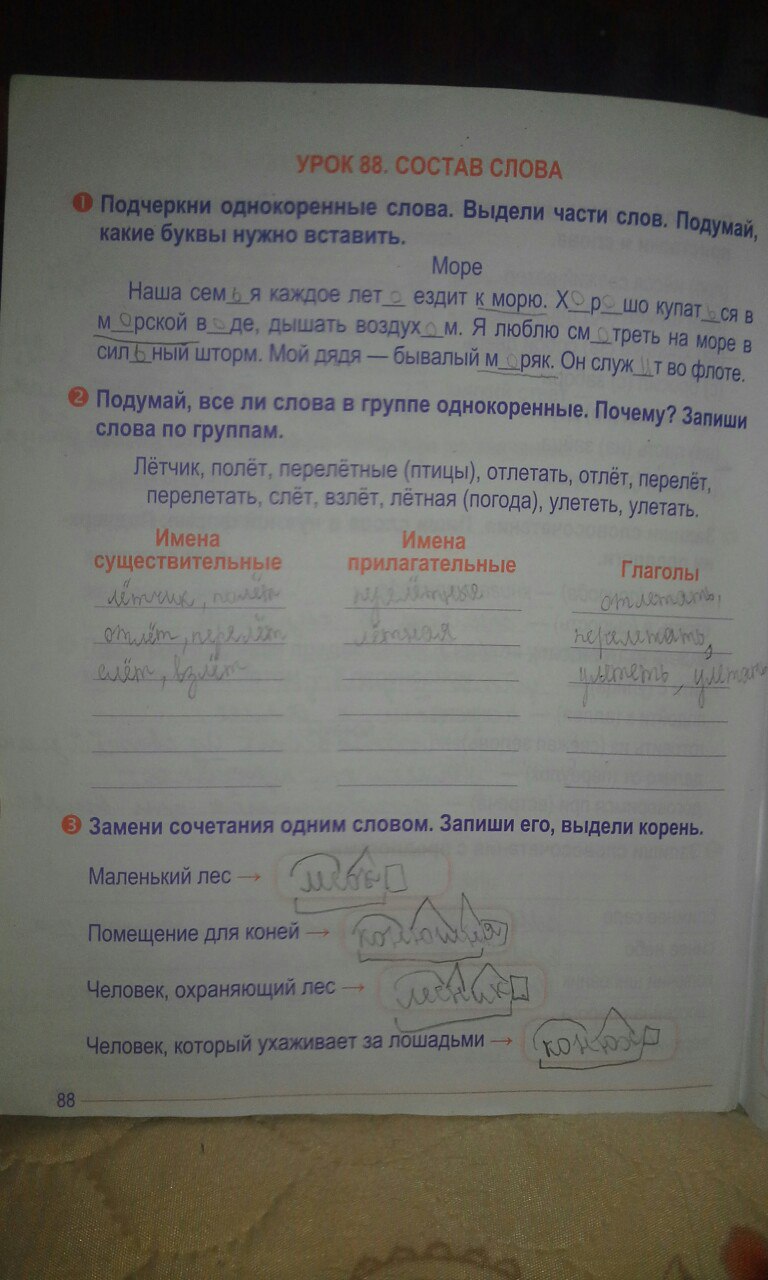 УРОК 88. СОСТАВ СЛОВА
1 Подчеркни однокоренные слова. Выдели части слов. Подумай,
какие буквы нужно вставить.
Море
Наша семья каждое лето ездит к морю. Хорошо купаться в
морской воде, дышать воздухом. Я люблю смотреть на море в
сильный шторм. Мой дядя — бывалый моряк. Он служит во флоте.
2 Подумай, все ли слова в группе однокоренные. Почему? Запиши
слова по группам.
Лётчик, полёт, перелётные (птицы), отлетать, отлёт, перелёт,
перелетать, слёт, взлёт, лётная (погода), улететь, улетать.
Имена существительные
Имена прилагательные
Глаголы
лётчик, полёт
перелётные
отлетать,
отлёт, перелёт
лётная
перелетать,
слёт, взлёт
улететь, улетать
3 Замени сочетания одним словом. Запиши его, выдели корень.
Маленький лес → лесок
Помещение для коней → конюшня
Человек, охраняющий лес → лесник
Человек, который ухаживает за лошадьми → конюх
88